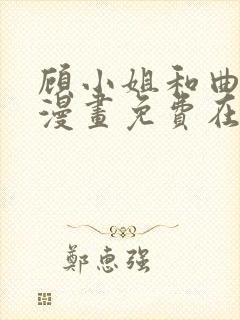 顾小姐和曲
漫畫免費在
鄭惠强